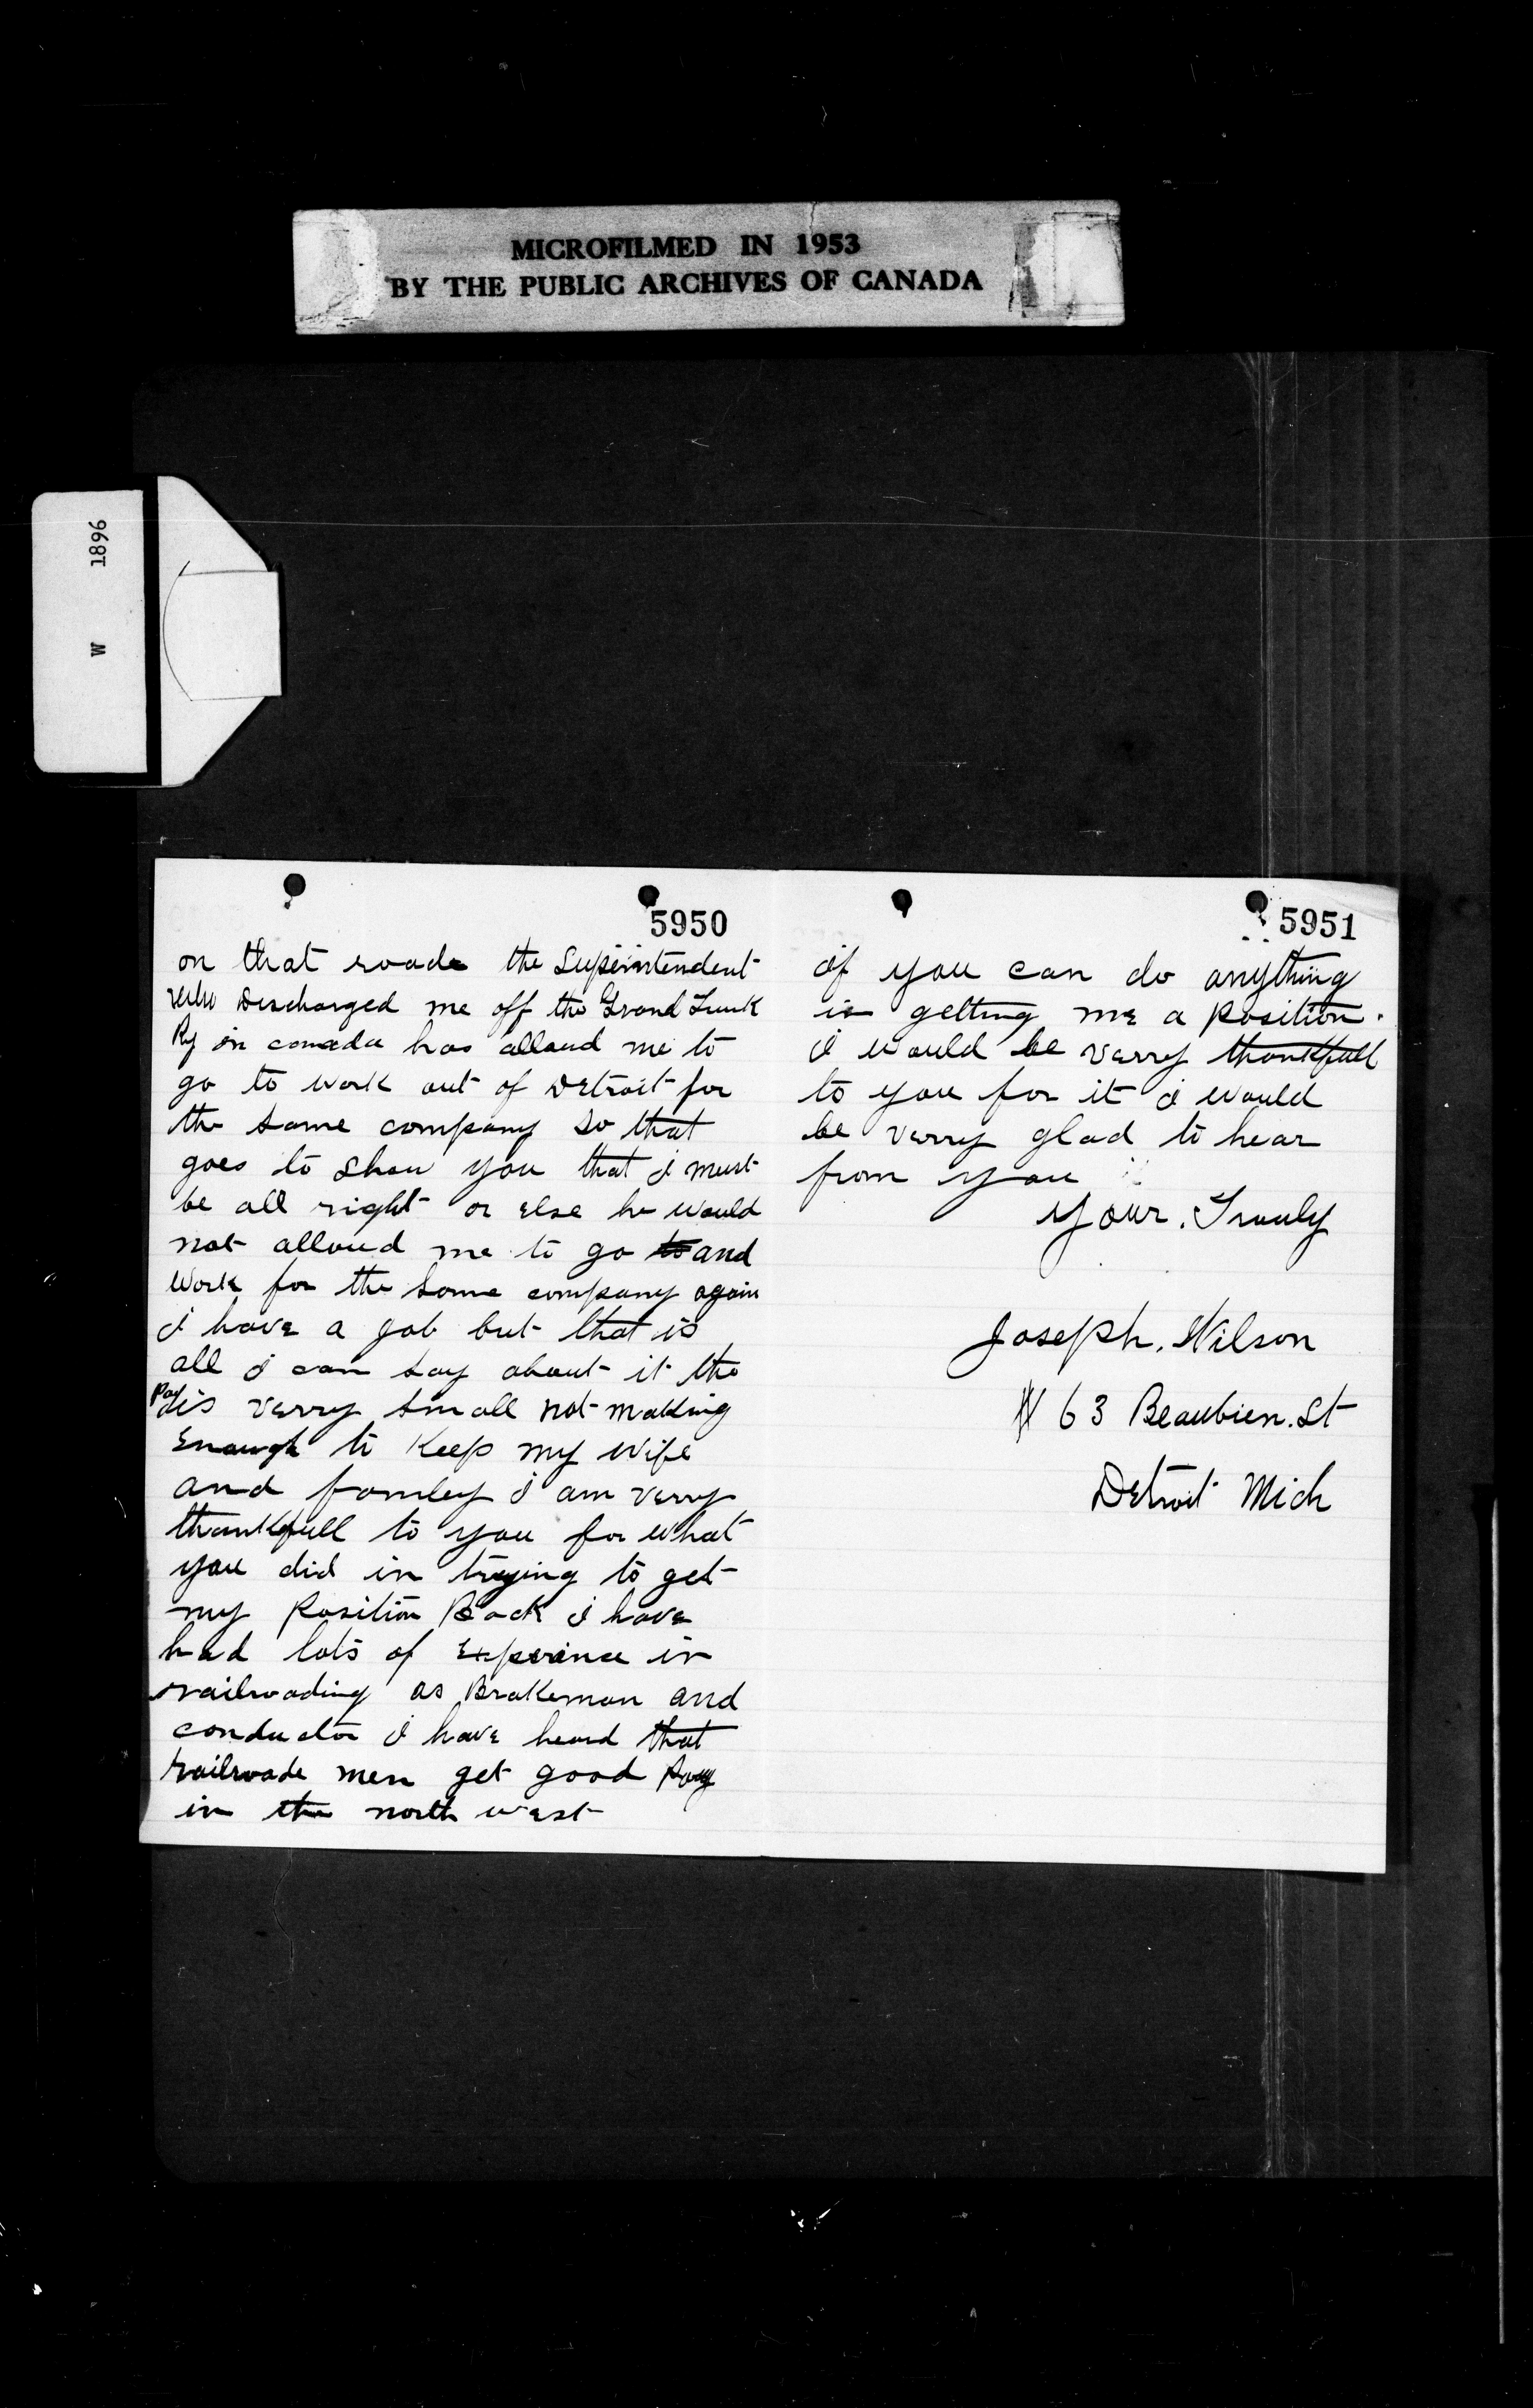 MICROFILMED IN 1953
BY THE PUBLIC ARCHIVES OF CANADA
W 1896
5950
on that roade the Superintendent
who Discharged me off the Grand Trunk
Ry in canada has alloud me to
go to work out of Detroit for
the same company so that
goes to show you that i must
be all right or else he would
not alloud me to go to and
work for the same company again
i have a job but that is
all i can say about it the
Pay is verry small not making
Enough to Keep my wife
and famley i am verry
thankfull to you for what
you did in trying to get
my Position Back i have
had lots of Experince in
railroading as Brakeman and
conductor i have heard that
railroade men get good Pay
in the north west
5951
if you can do anything
in getting me a Position.
i would be verry thankfull
to you for it i would
be verry glad to hear
from you
Your. Truuly
Joseph. Wilson
# 63 Beaubien. St
Detroit Mich